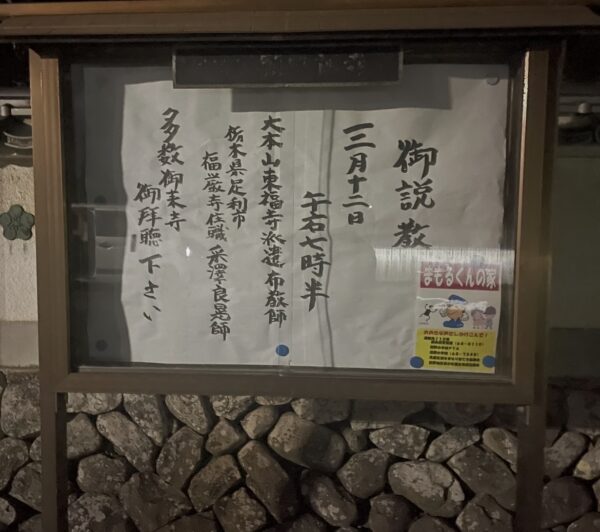 御説教
三月十二日
午后七時半
大本山東福寺派遣布教師
栃木県足利市
福厳寺住職 采澤良晃師
多数御来寺
御拝聴下さい
まもるくんの家